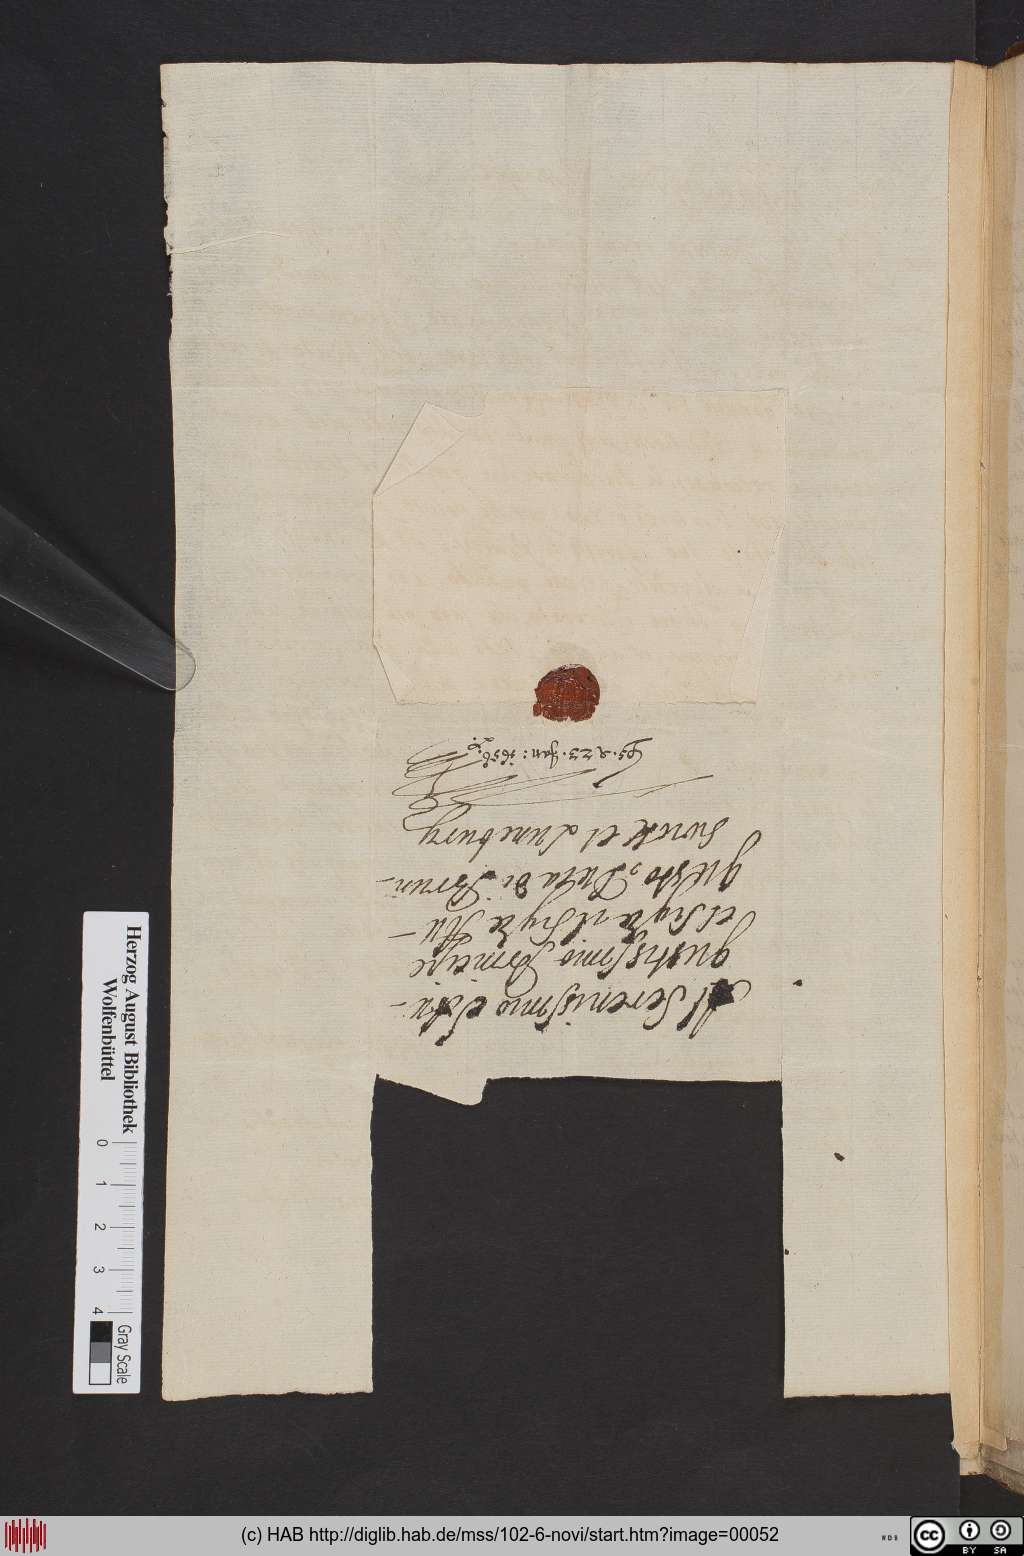 Al Serenissimo et Au-
gustissimo Principe
et Sig.r il Sig.r Au-
gusto, Duca di Brun-
swick et Luneburg
23. Jan: 1656.
Herzog August Bibliothek
Wolfenbüttel
0 1 2 3 4
Gray Scale
(c) HAB http://diglib.hab.de/mss/102-6-novi/start.htm?image=00052
cc BY SA